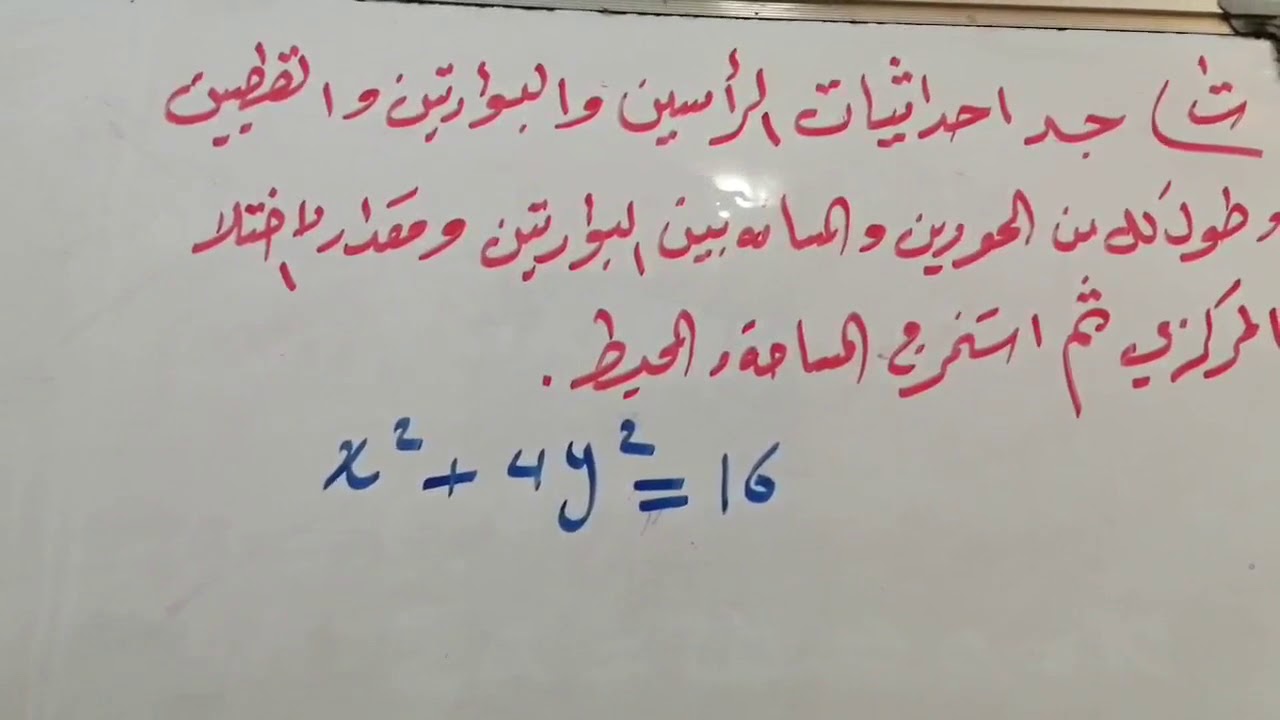 ث) جد احداثيات الرأسين والبؤرتين والقطبين
وطول كل من المحورين والمسافه بين البؤرتين ومقدار الاختلا
المركزي ثم استخرج المساحة والمحيط.
x² + 4y² = 16